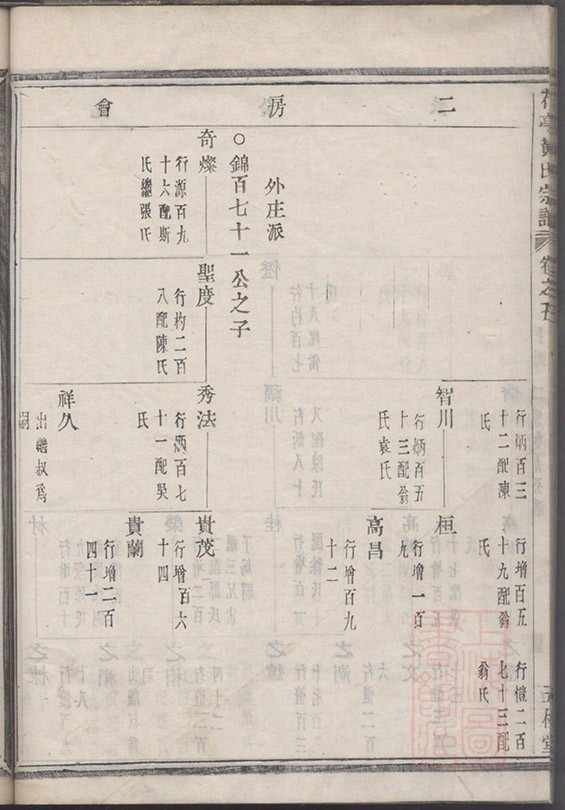 二房會
行炳百三
十二配陳
氏
行增百五
十九配翁
氏
行憻二百
七十三配
翁氏
智川
行炳百五
十三配翁
氏袁氏
桓
行增一百
九
高昌
行增百九
十二
外庄派
○錦百七十一公之子
奇燦
行源百九
十六配斯
氏繼張氏
聖度
行杓二百
八配陳氏
秀法
行炳百七
十一配吳
氏
貴茂
行增百六
十四
貴蘭
行增二百
四十一
祥久
出繼叔爲
嗣
鄭氏宗譜
卷之五